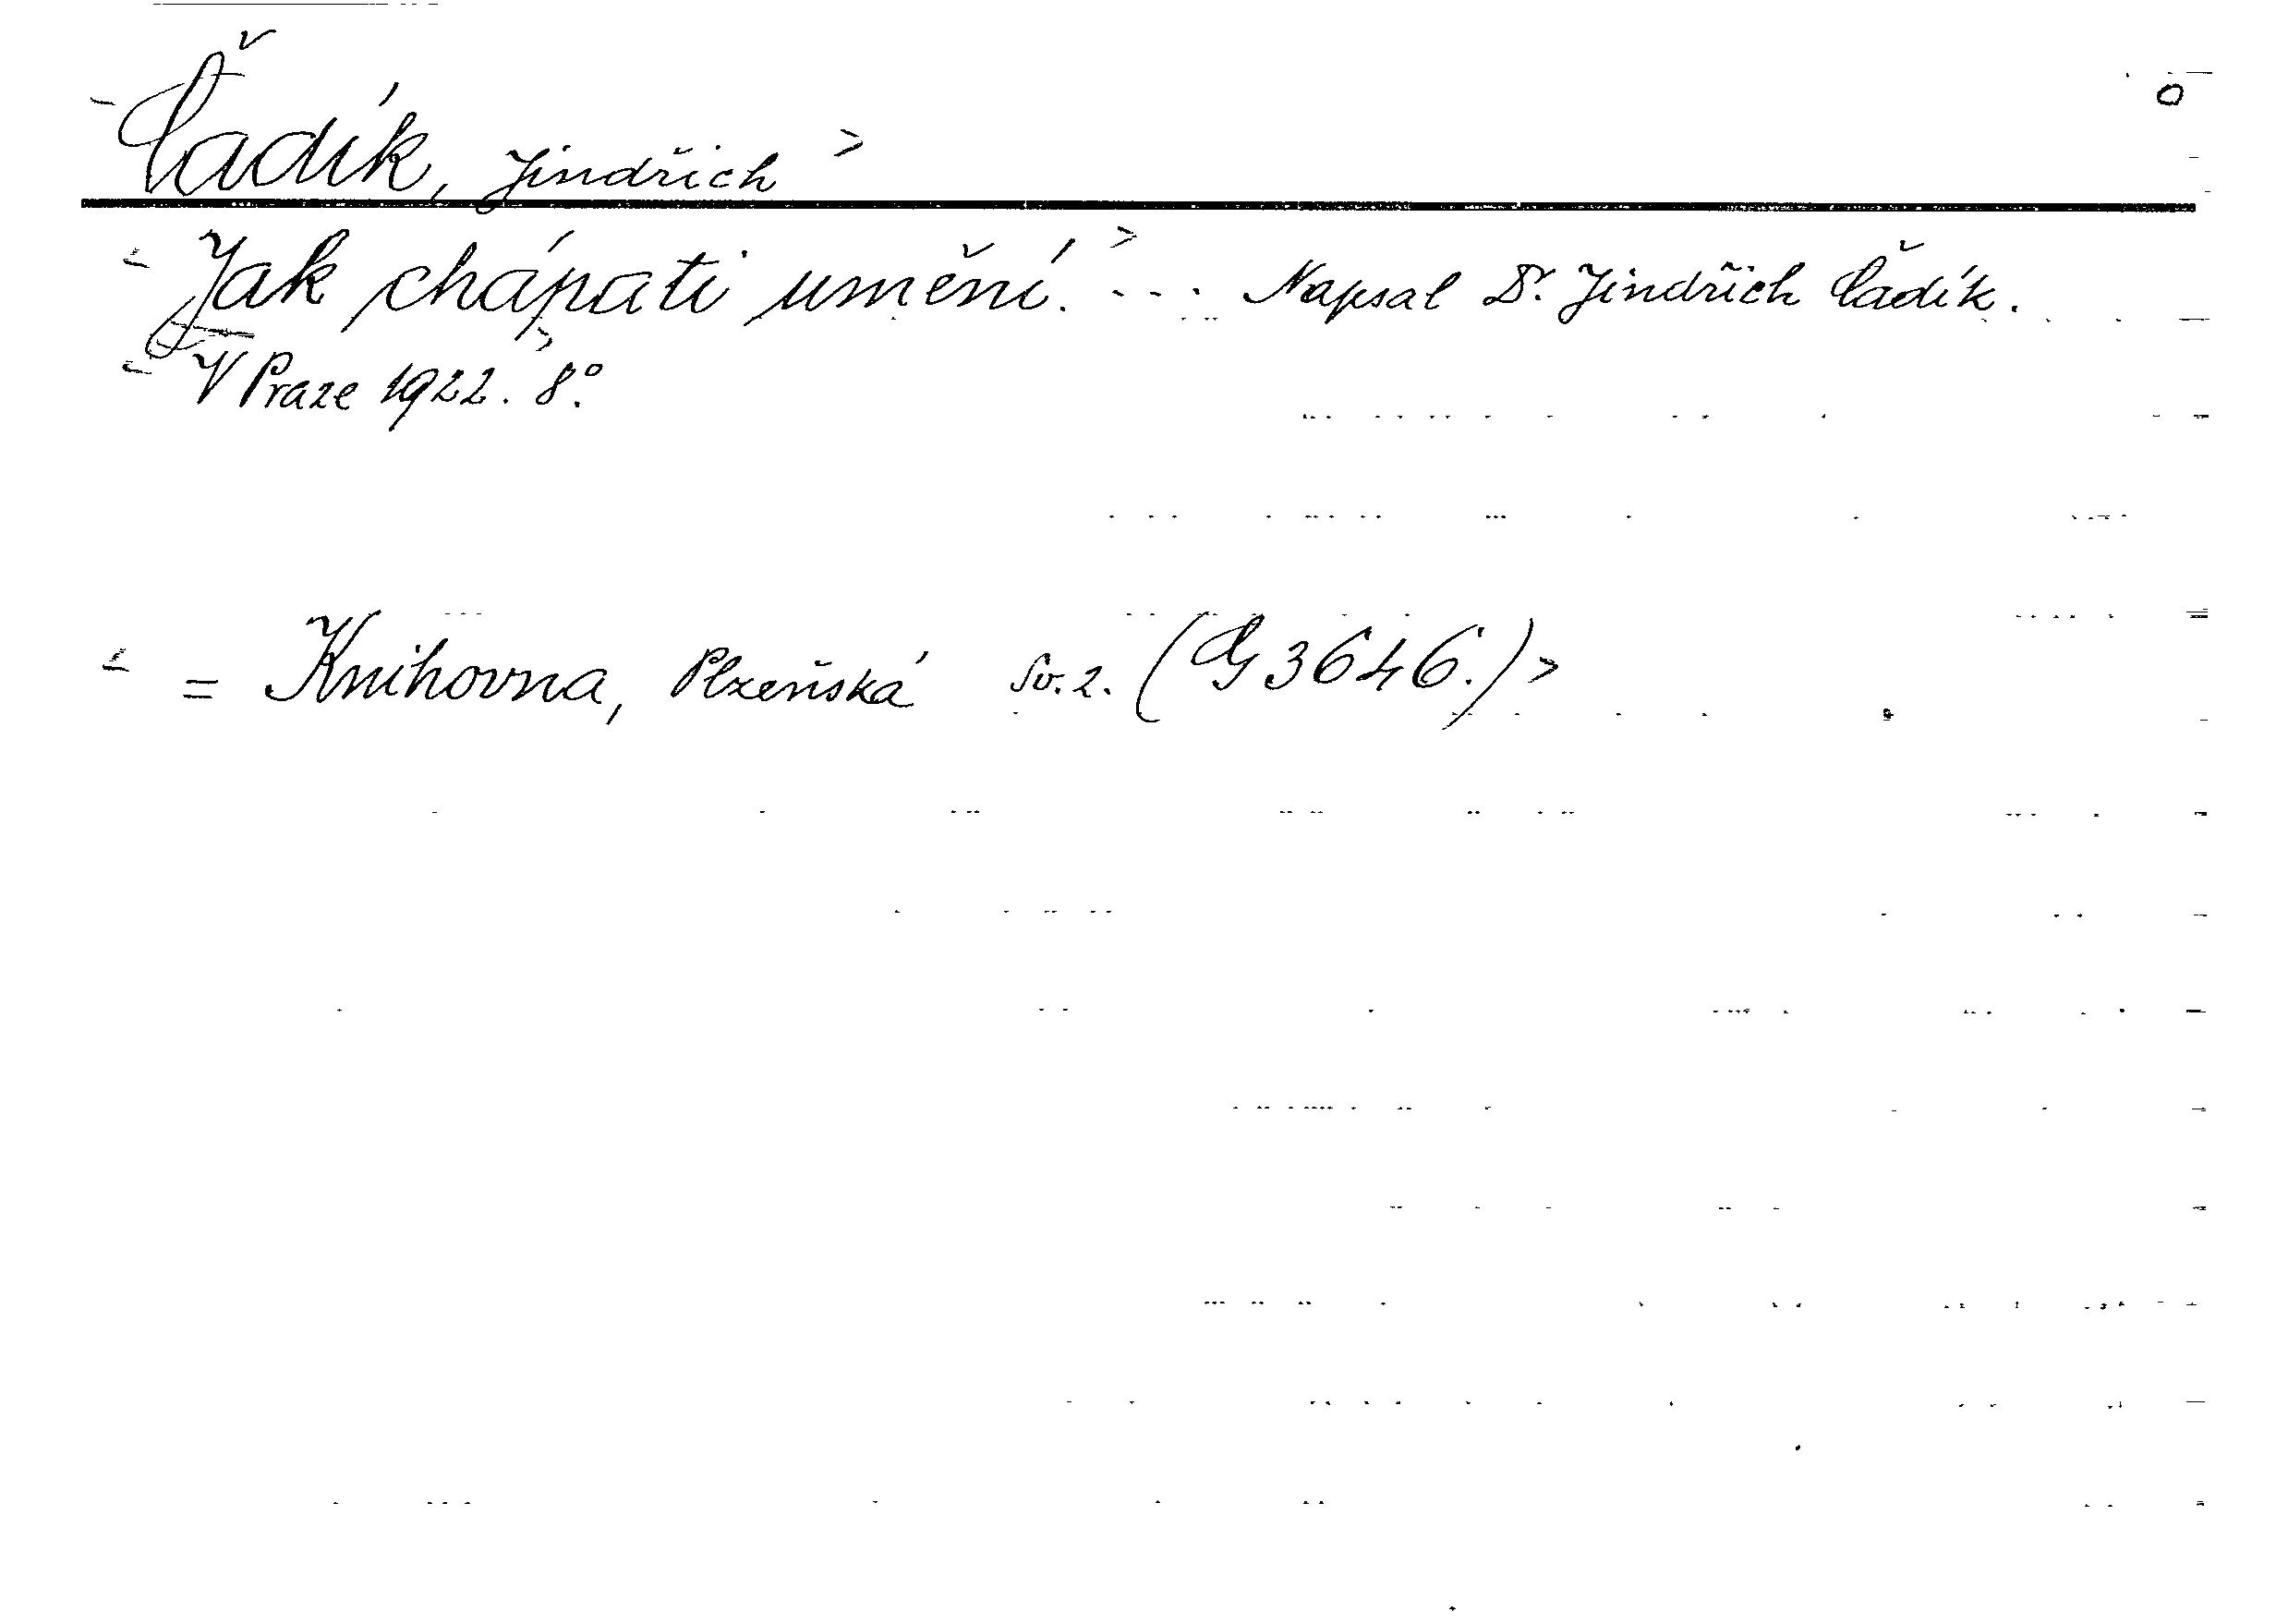 Čadík, Jindřich
Jak chápati umění. ... Napsal Dr. Jindřich Čadík.
V Praze 1922. 8°.
= Knihovna, Plzeňská Sv. 2. (G 3646.)